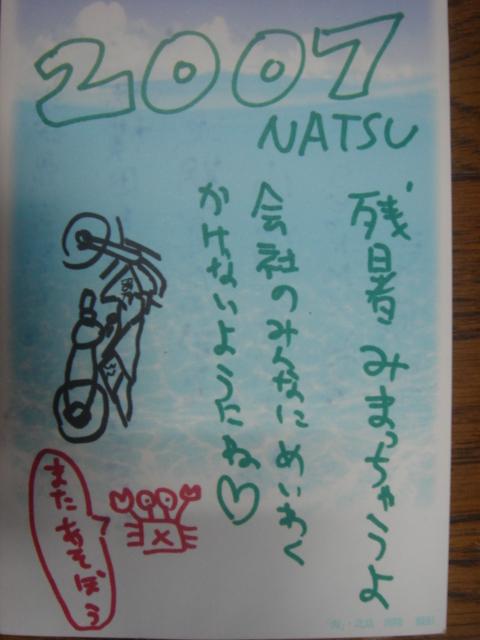 2007
NATSU
残暑みまっちゃうよ
会社のみんなにめいわく
かけないようにね♡
またあそぼう